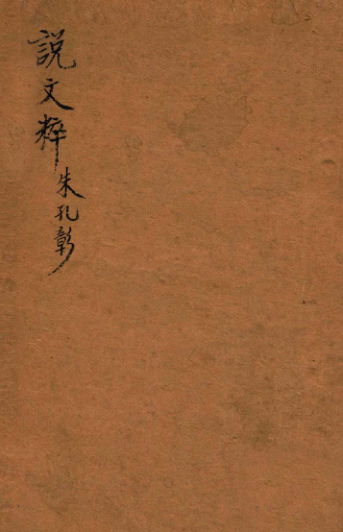 説文粹 朱孔彰